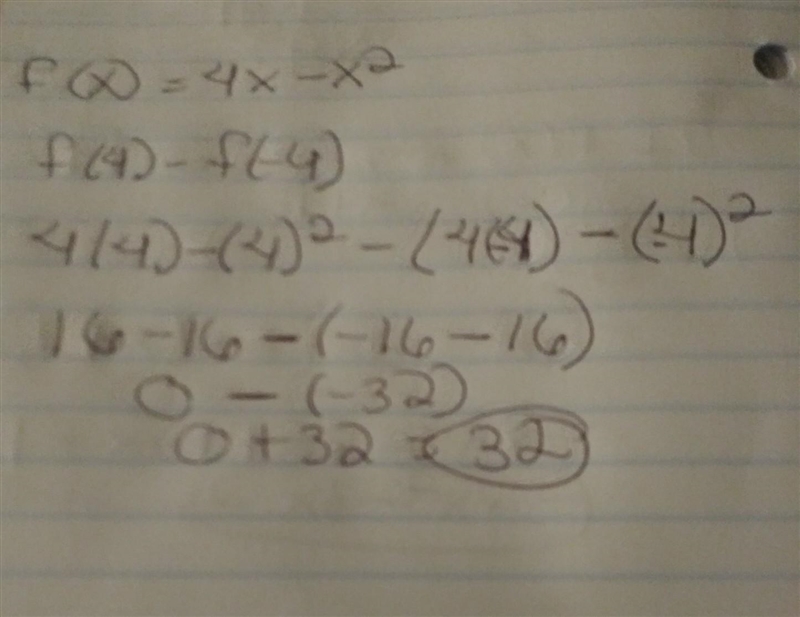 f(x) = 4x - x²
f(4) - f(-4)
4(4) - (4)² - (4(-4) - (-4)²
16 - 16 - (-16 - 16)
0 - (-32)
0 + 32 = 32